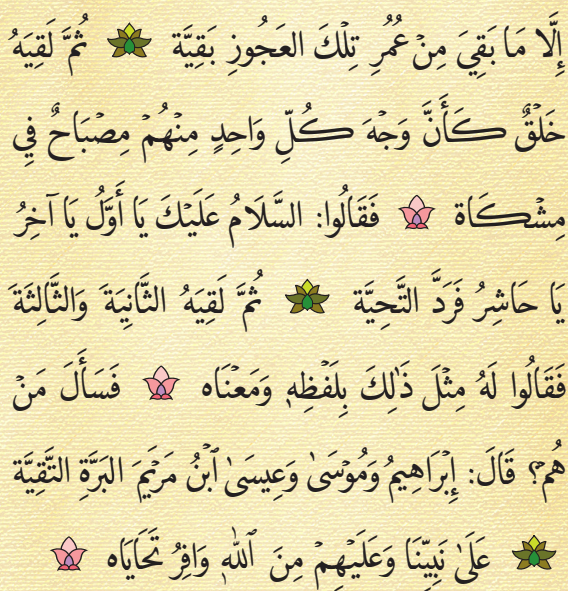 إِلَّا مَا بَقِيَ مِنْ عُمُرِ تِلْكَ العَجُوزِ بَقِيَّة ثُمَّ لَقِيَهُ
خَلْقٌ كَأَنَّ وَجْهَ كُلِّ وَاحِدٍ مِنْهُمْ مِصْبَاحٌ فِي
مِشْكَاة فَقَالُوا: السَّلَامُ عَلَيْكَ يَا أَوَّلُ يَا آخِرُ
يَا حَاشِرُ فَرَدَّ التَّحِيَّة ثُمَّ لَقِيَهُ الثَّانِيَةَ وَالثَّالِثَةَ
فَقَالُوا لَهُ مِثْلَ ذَٰلِكَ بِلَفْظِهِ وَمَعْنَاه فَسَأَلَ مَنْ
هُم؟ قَالَ: إِبْرَاهِيمُ وَمُوسَىٰ وَعِيسَىٰ ٱبْنُ مَرْيَمَ البَرَّةِ التَّقِيَّة
عَلَىٰ نَبِيِّنَا وَعَلَيْهِمْ مِنَ ٱللّٰهِ وَافِرُ تَحَايَاه